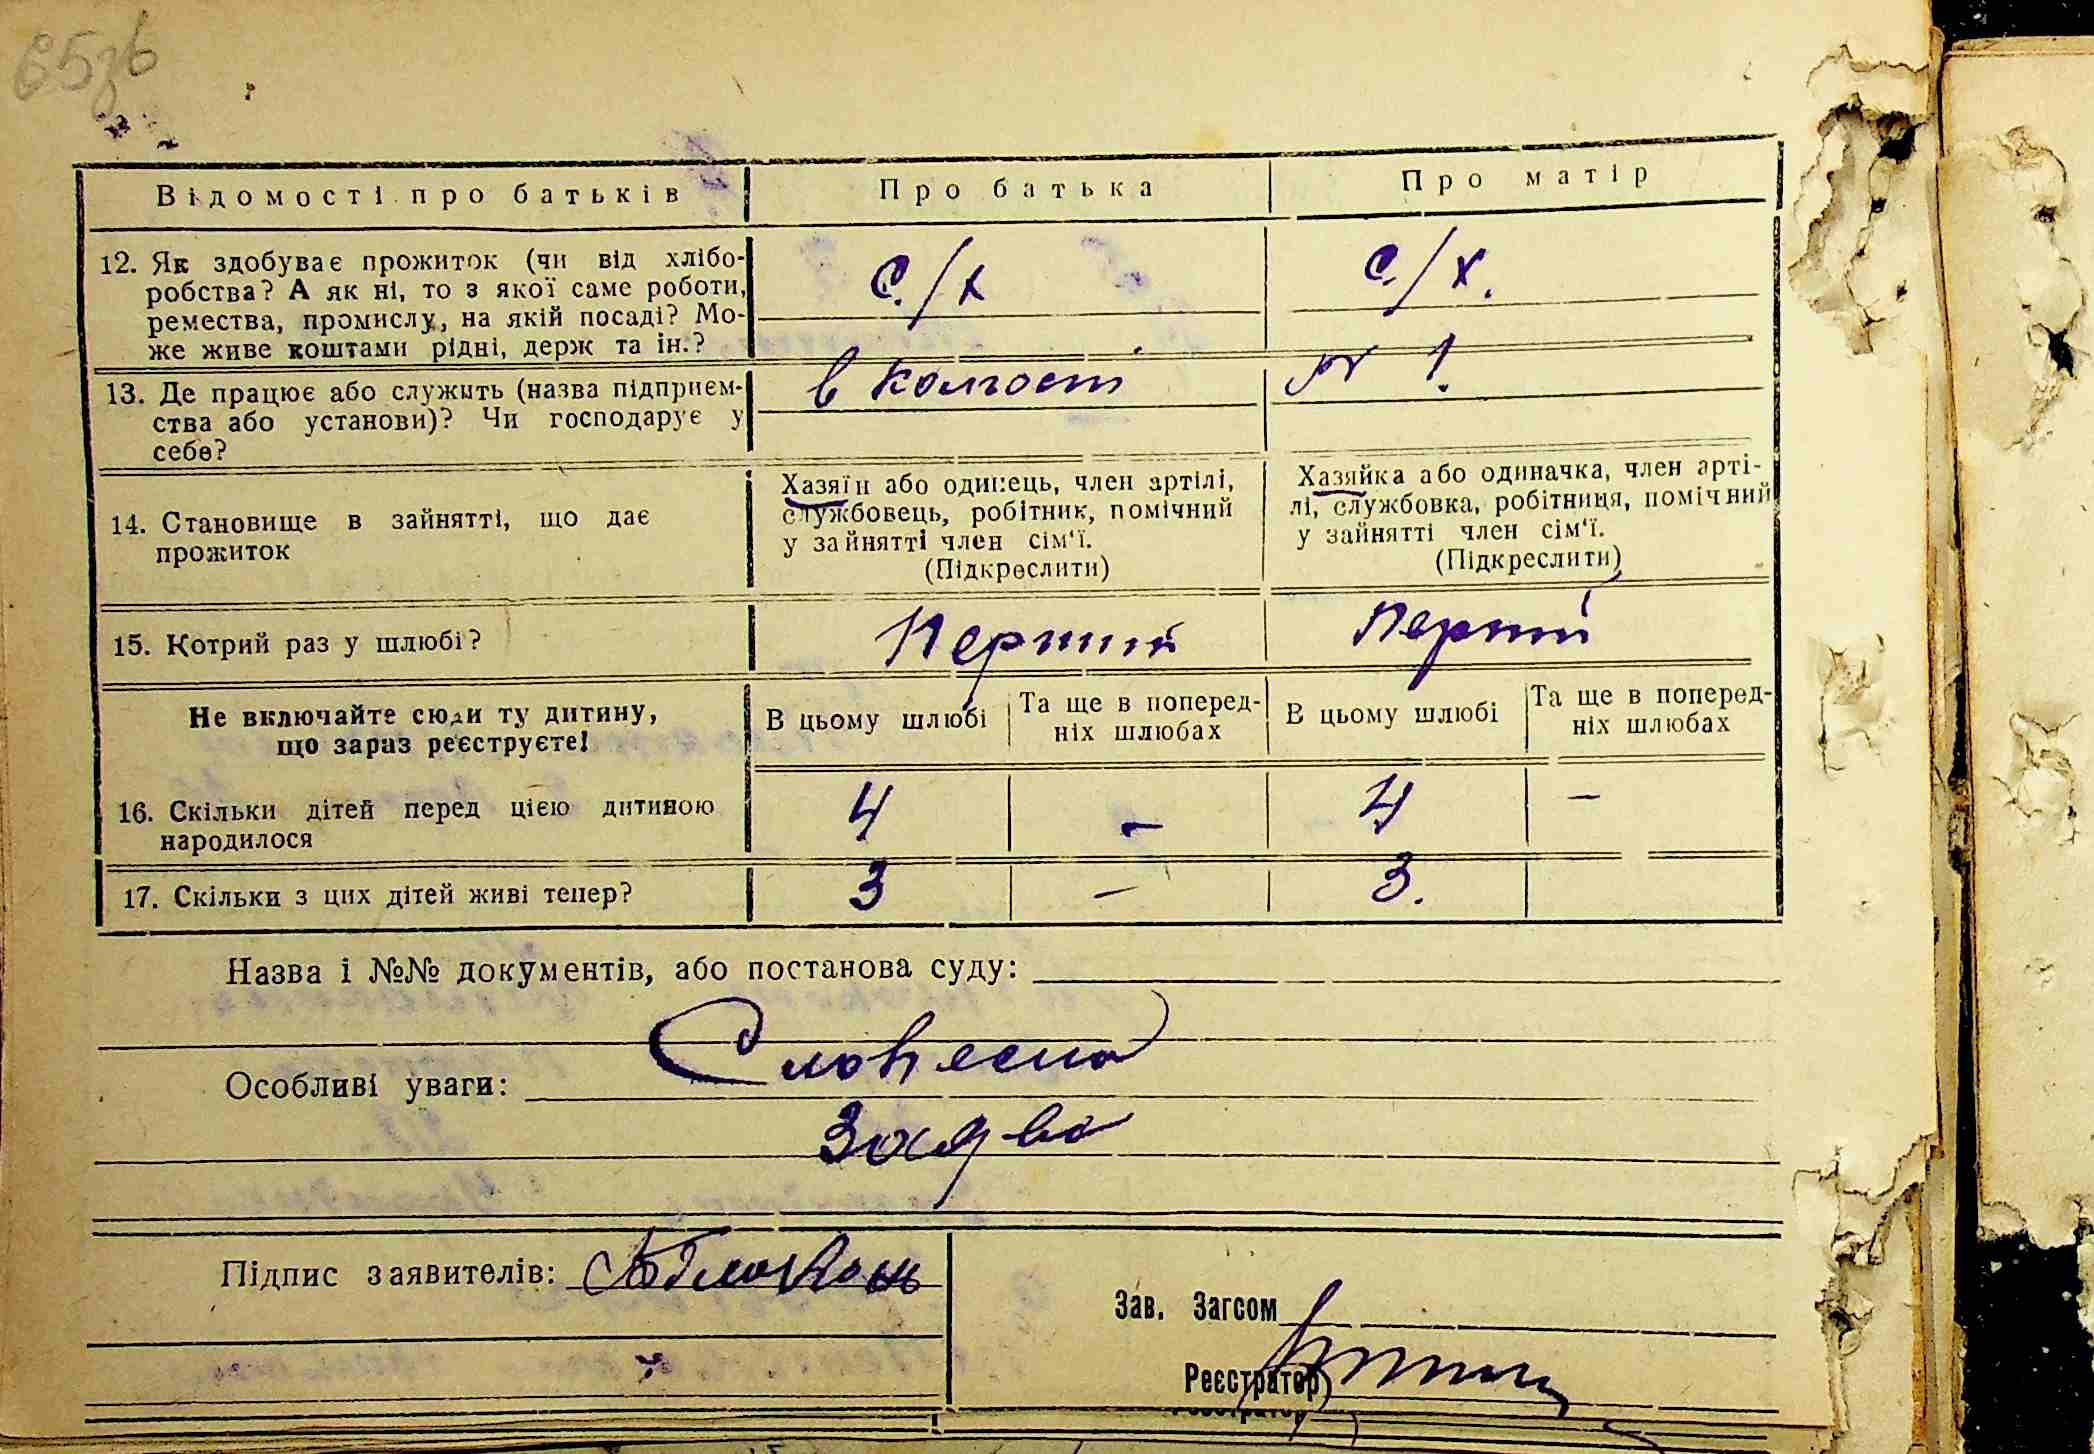 65зв
Відомості про батьків Про батька Про матір
12. Як здобуває прожиток (чи від хлібо-
робства? А як ні, то з якої саме роботи,
ремества, промислу, на якій посаді? Мо-
же живе коштами рідні, держ та ін.?
с./х с./х.
13. Де працює або служить (назва підприєм-
ства або установи)? Чи господарує у
себе?
в колгоспі № 1.
14. Становище в зайнятті, що дає
прожиток
Хазяїн або одинець, член артілі,
службовець, робітник, помічний
у зайнятті член сім'ї.
(Підкреслити)
Хазяйка або одиначка, член арті-
лі, службовка, робітниця, помічний
у зайнятті член сім'ї.
(Підкреслити)
15. Котрий раз у шлюбі? Перший Перший
Не включайте сюди ту дитину,
що зараз реєструєте!
В цьому шлюбі
Та ще в поперед-
ніх шлюбах
В цьому шлюбі
Та ще в поперед-
ніх шлюбах
16. Скільки дітей перед цією дитиною
народилося
4 - 4 -
17. Скільки з цих дітей живі тепер? 3 - 3.
Назва і №№ документів, або постанова суду:
Особливі уваги: Словесна
Заява
Підпис заявителів:
Зав. Загсом
Реєстратор